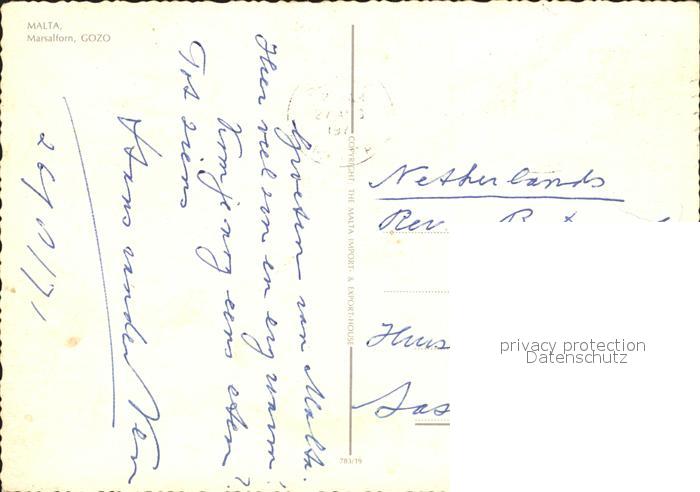 MALTA,
Marsalforn, GOZO
Groeten van Malta.
Hier veel zon en erg warm!
Kom je nog eens eten?
Tot ziens
Hans van der Ven
COPYRIGHT THE MALTA IMPORT- & EXPORT-HOUSE
783/19
Netherlands
Rev.
privacy protection
Datenschutz